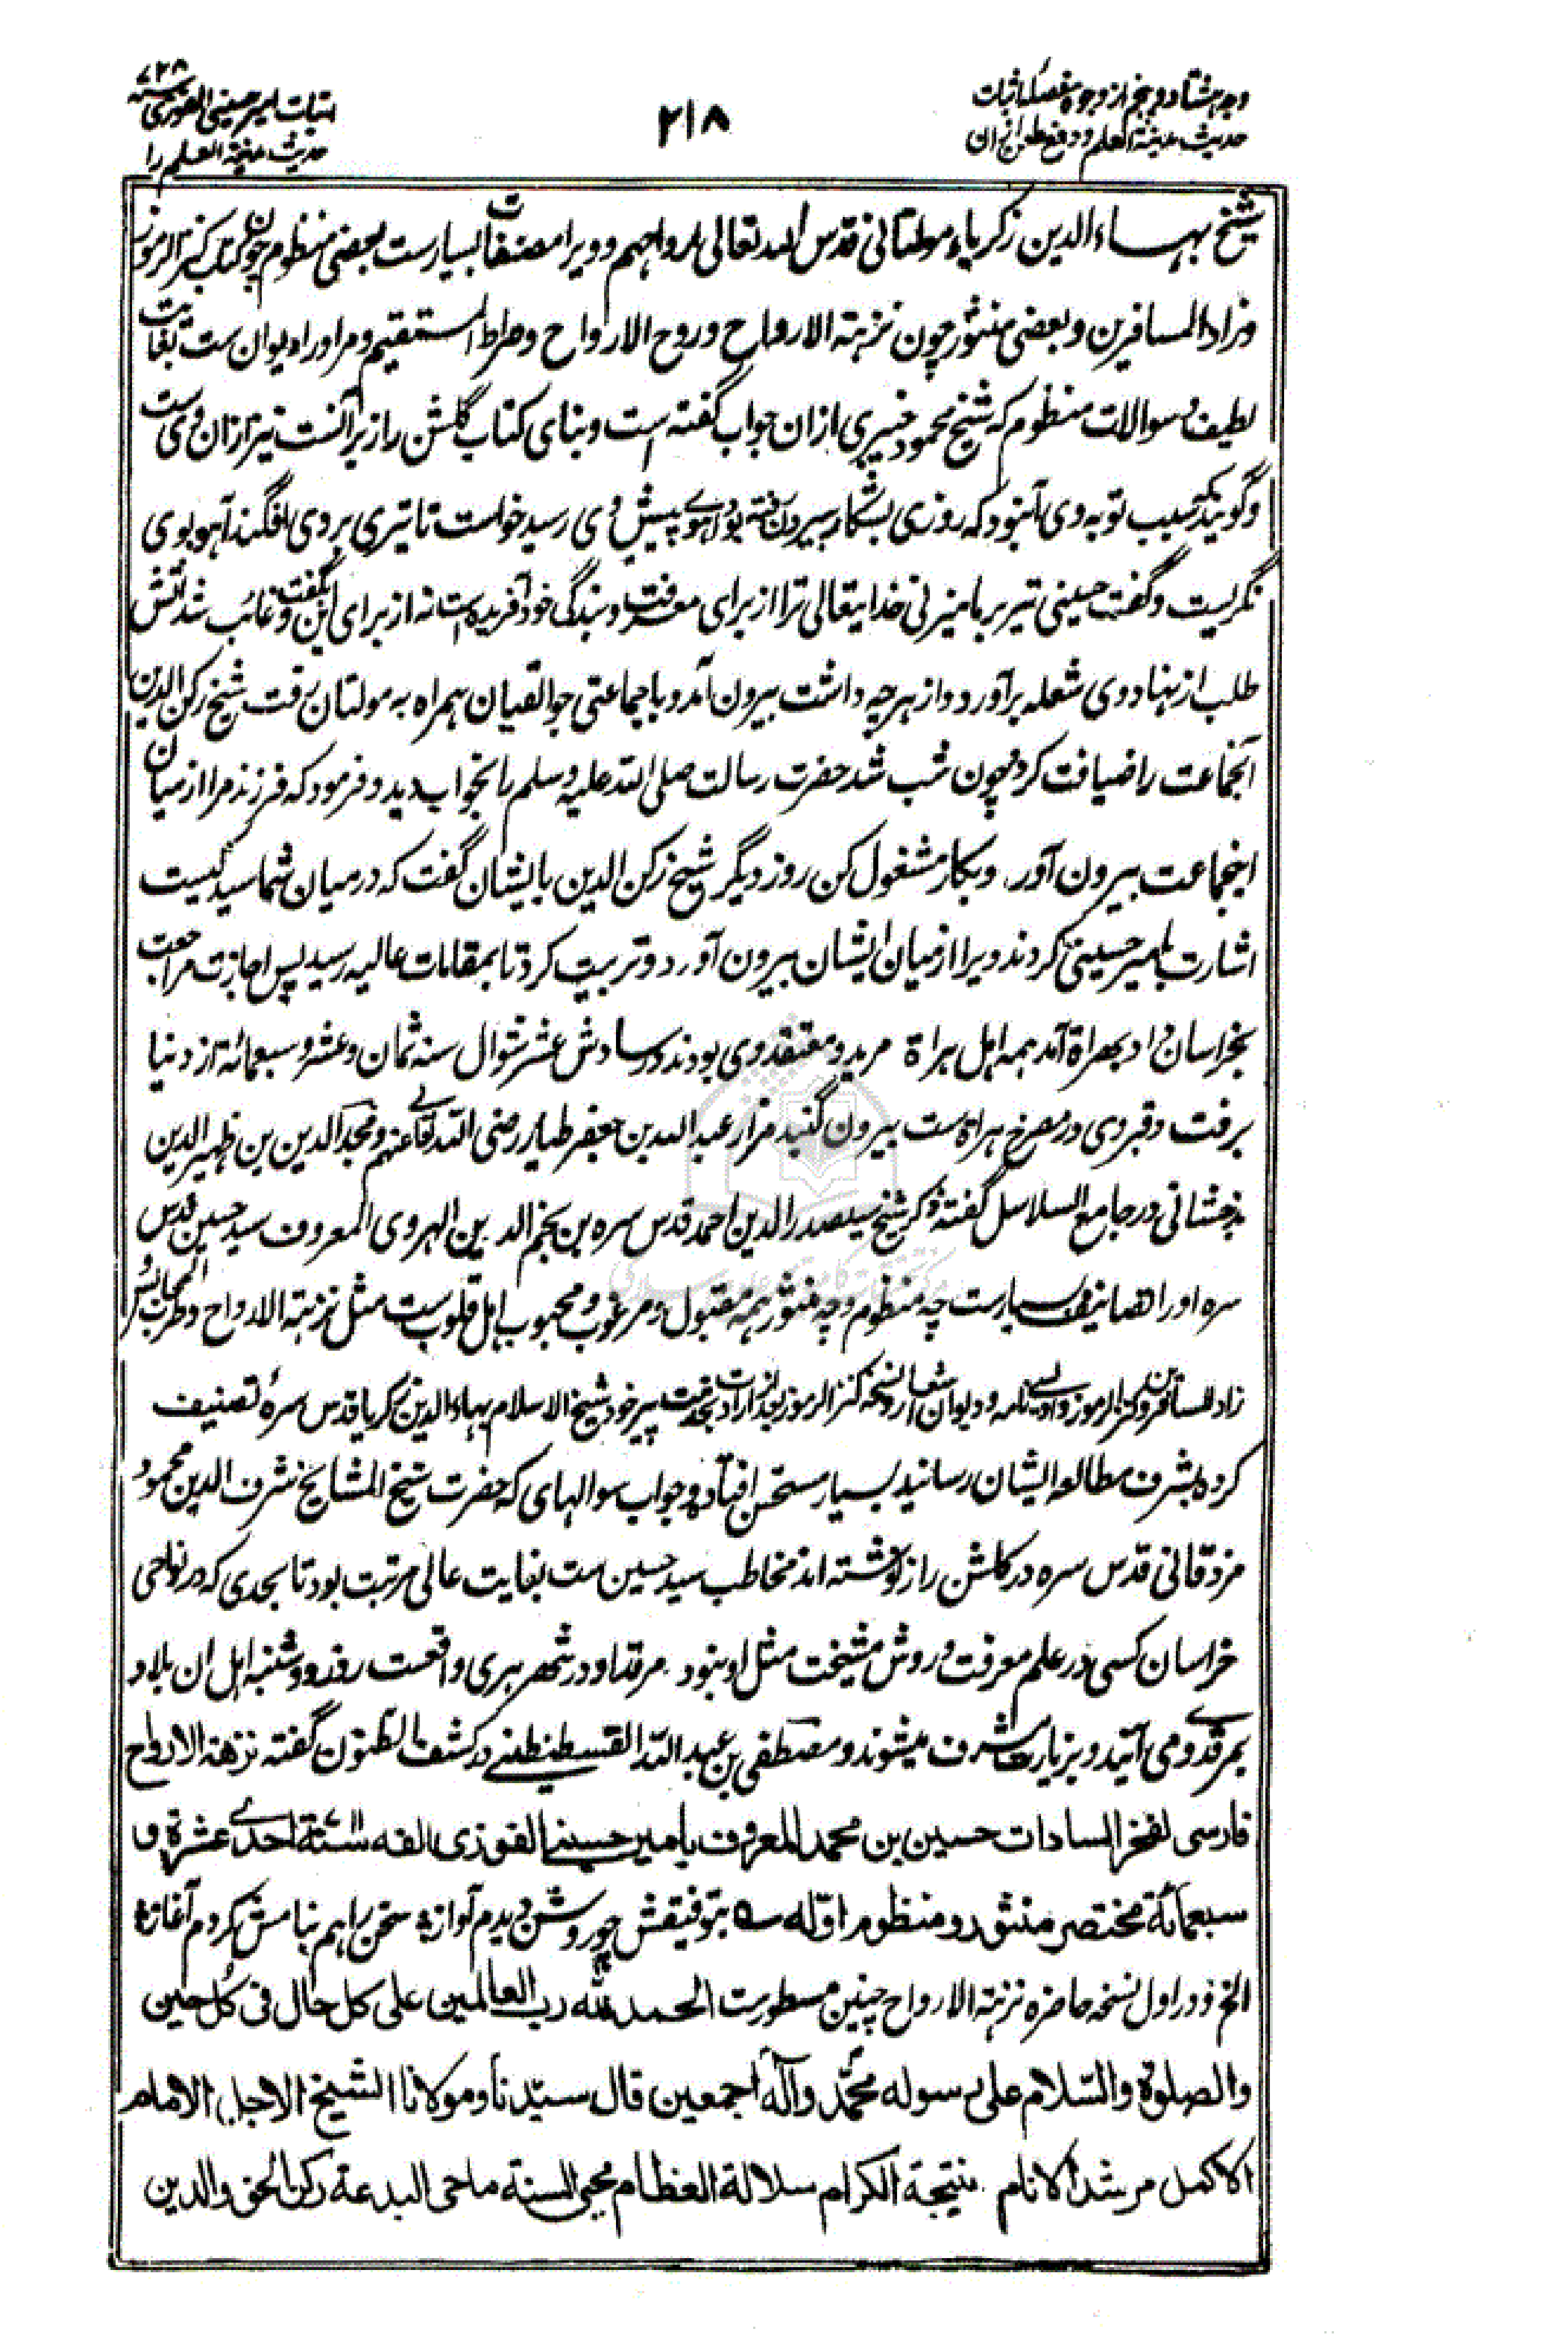 وجه هشتاد و پنجم از وجوه مفصله اثبات
حدیث مدینة العلم و دفع طعن از ان
۲۱۸
اثبات امیر حسینی الغوری سنه ۷۲۸
حدیث مدینة العلم را
شیخ بهاءالدین زکریاء مولتانی قدس الله تعالی ارواحهم و ویرا مصنفات بسیارست بعضی منظوم چون کتاب کنز الرموز
و زاد المسافرین و بعضی منثور چون نزهته الارواح و روح الارواح و صراط المستقیم و مر او را دیوان ست بغایت
لطیف و سوالات منظوم که شیخ محمود چبستری ازان جواب گفته است و بنای کتاب گلشن راز بر آنست نیز ازان وی ست
و گویند که سبب توبه وی آن بود که روزی بشکار بیرون رفته بود آهوے پیش وی رسید خواست تا تیری بر وی افگند آهو بوی
نگریست و گفت حسینی تیر بر ما میزنی خدایتعالی ترا از برای معرفت و بندگی خود آفریده است نه از برای این بگفت و غائب شد آتش
طلب از نهاد وی شعله برآورد و از هر چه داشت بیرون آمد و با جماعتی جوالقیان همراه به مولتان رفت شیخ رکن الدین
آنجماعت را ضیافت کرد چون شب شد حضرت رسالت صلی الله علیه و سلم را بخواب دید و فرمود که فرزند مرا از میان
اینجماعت بیرون آور و بکار مشغول کن روز دیگر شیخ رکن الدین با ایشان گفت که در میان شما سید کیست
اشارت بامیر حسینی کردند ویرا از میان ایشان بیرون آورد و تربیت کرد تا بمقامات عالیه رسید پس اجازت مراجعت
بخراسان داد بهراة آمد همه اهل هراة مرید و معتقد وی بودند در سادس عشر شوال سنه ثمان و عشر و سبعمائة از دنیا
برفت و قبر وی در مصرخ هراة است بیرون گنبد مزار عبد الله بن جعفر طیار رضی الله تعالی عنهم و مجد الدین بن ظهیر الدین
بدخشانی در جامع السلاسل گفته ذکر شیخ سید صدر الدین احمد قدس سره بن نجم الدین الهروی المعروف سید حسین قدس
سره او را تصانیف بسیارست چه منظوم و چه منثور همه مقبول و مرغوب و محبوب اهل قلوب ست مثل نزهته الارواح و طرب المجالس و
زاد المسافرین و کنز الرموز و سی نامه و دیوان اشعار و نسخه کنز الرموز بعد از ارادت بخدمت پیر خود شیخ الاسلام بهاء الدین زکریا قدس سره تصنیف
کرده بشرف مطالعه ایشان رسانید بسیار مستحسن افتاد و جواب سوالهای که حضرت شیخ المشایخ شرف الدین محمود
مزدقانی قدس سره در گلشن راز نوشته اند مخاطب سید حسین ست بغایت عالی مرتبت بود تا بحدی که در نواحی
خراسان کسی در علم معرفت و روش مشیخت مثل او نبود مرقد او در شهر هری واقعست روز دوشنبه اهل ان بلاد
بمرقد وی می آیند و بزیارت مشرف میشوند و مصطفی بن عبد الله القسطنطنی در کشف الظنون گفته نزهة الارواح
فارسی لفخر السادات حسین بن محمد المعروف بامیر حسینی الفوزی الفه سنة ۷۱۱ احدے عشرة و
سبعمائة مختصر منثور و منظوم اوله سه بتوفیقش چو روشن دیدم آوازه سخن را هم بنامش کردم آغازه
الخ و در اول نسخه حاضره نزهته الارواح چنین مسطورست الحمد لله رب العالمین علی کل حال فی کل حین
والصلوة والسلام علی رسوله محمد وآله اجمعین قال سیدنا و مولانا الشیخ الاجل الامام
الاکمل مرشد الانام نتیجة الکرام سلالة العظام محی السنة ماحی البدعة رکن الحق والدین